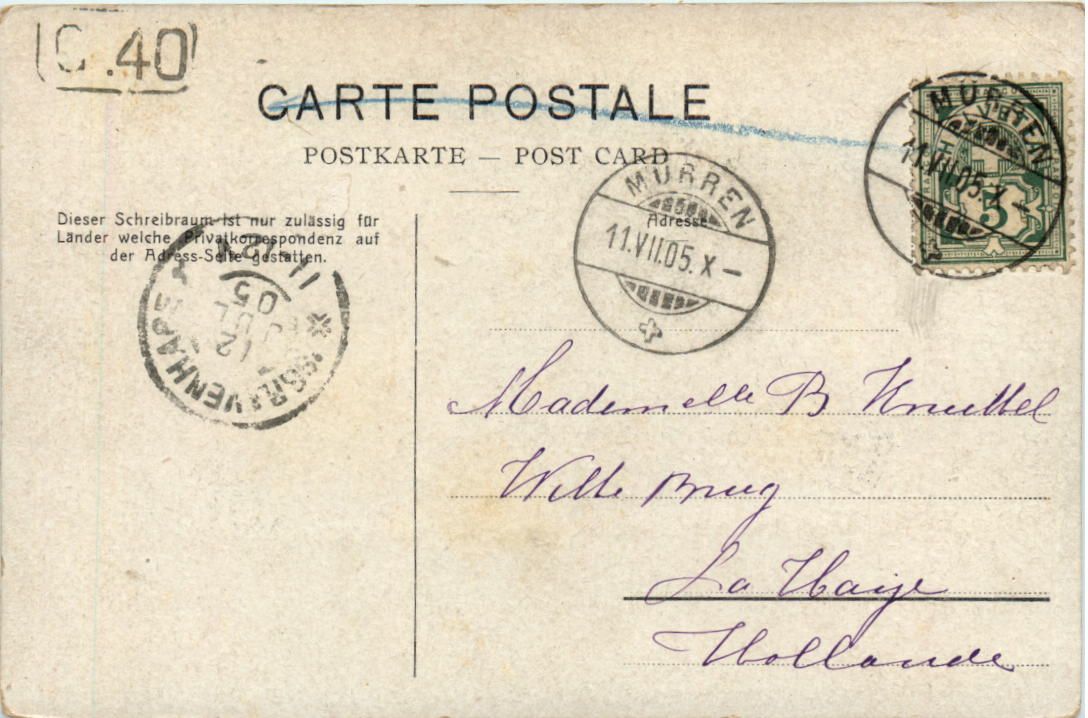 G.40
CARTE POSTALE
POSTKARTE — POST CARD
Dieser Schreibraum ist nur zulässig für
Länder welche Privatkorrespondenz auf
der Adress-Seite gestatten.
Adresse
MURREN
11.VII.05.X–
MURREN
11.VII.05.X–
5
'SGRAVENHAGE
12 JUL 05
Mademelle B
Witte Brug
La Haije
Hollande